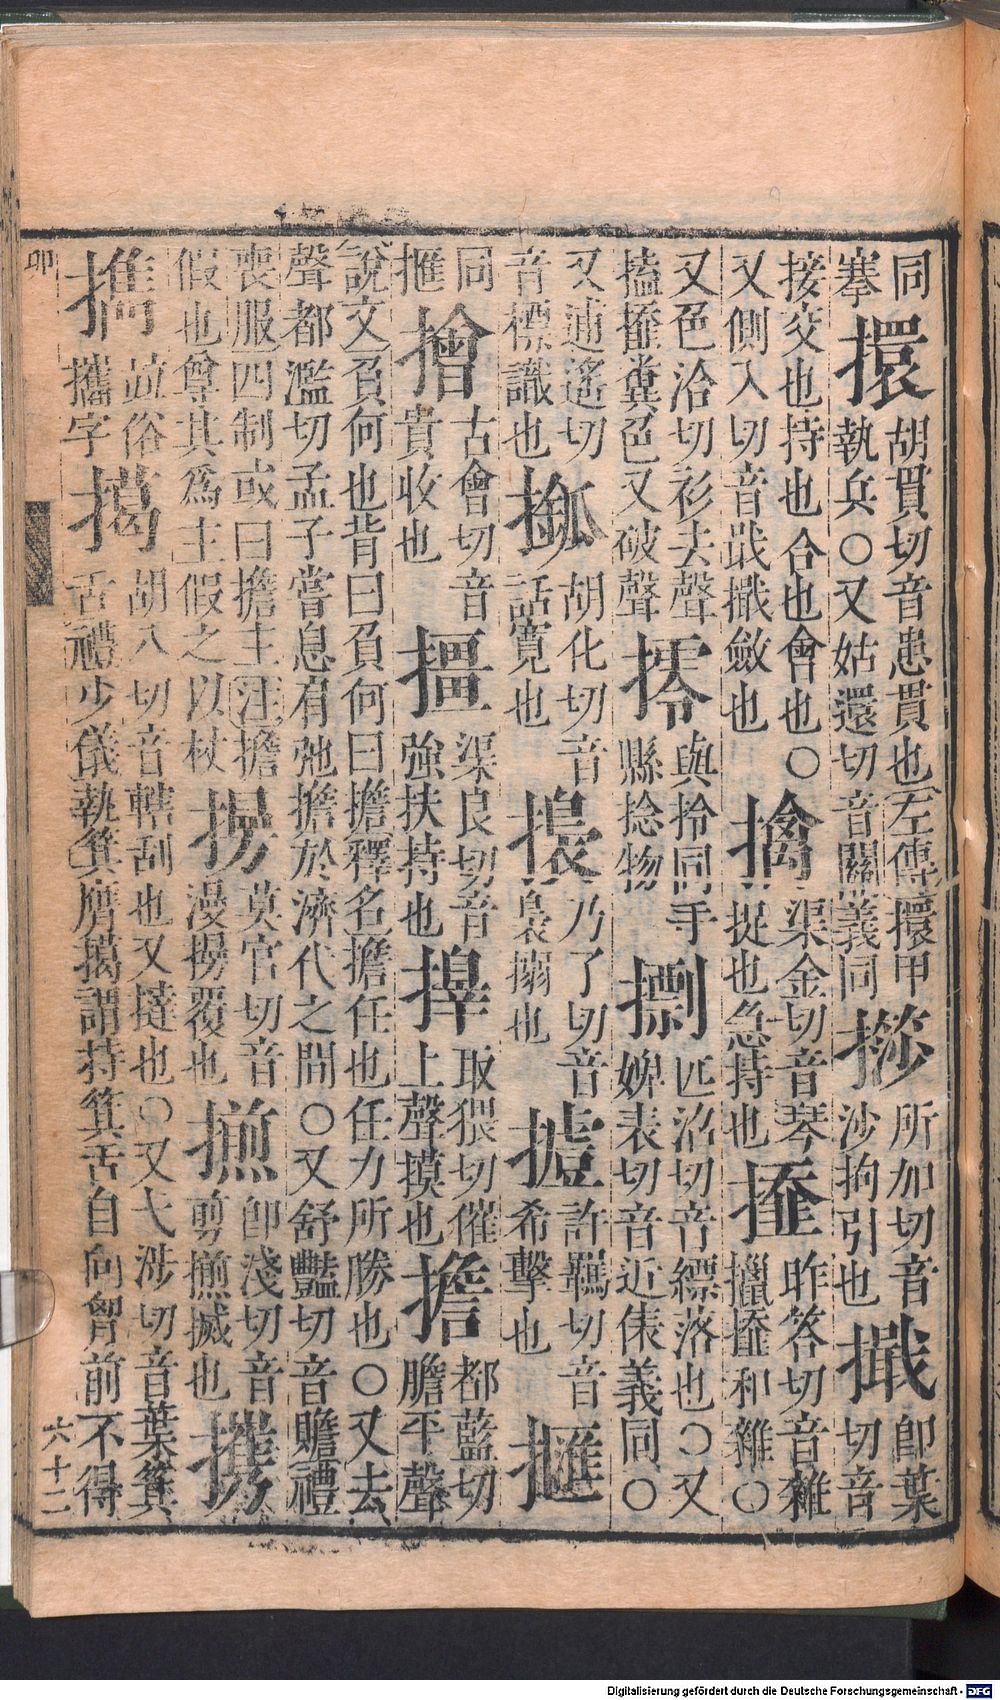 同搴擐胡貫切音患貫也左傳擐甲執兵○又姑還切音關義同所加切音沙拘引也即葉切音
接交也持也合也會也○又側入切音戢斂也擒渠金切音琴捉也急持也昨答切音雜擸和雜○
又色洽切衫去聲搕糞又破聲與拎同手縣捻物匹沼切音縹落也○又婢表切音近俵義同○
又逋遙切音標識也胡化切音話寬也乃了切音裊搦也許羈切音希擊也
同古會切音貴收也渠良切音強扶持也取猥切催上聲摸也擔都藍切膽平聲
說文負何也背曰負何曰擔釋名擔任也任力所勝也○又去聲都濫切孟子嘗息肩弛擔於濟代之間○又舒豔切音贍禮
喪服四制或曰擔主注擔假也尊其爲主假之以杖莫官切音漫覆也卽淺切音剪滅也
擕竝俗攜字擖胡八切音轄刮也又撻也○又弋涉切音葉箕舌禮少儀執箕膺擖謂持箕舌自向胷前不得
卯
六十二
Digitalisierung gefördert durch die Deutsche Forschungsgemeinschaft - DFG